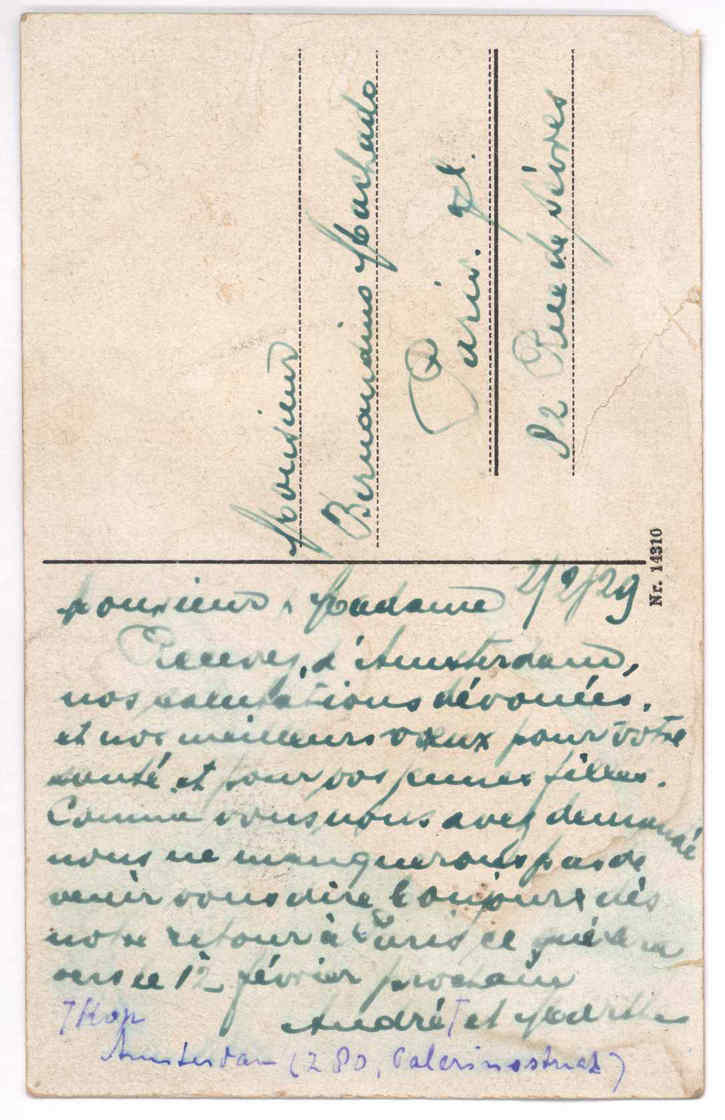 Monsieur
Bernardino Machado
Paris.
82 Rue de Sèvres
Nr. 14310
Monsieur, Madame 2/2/29
Recevez, d'Amsterdam,
nos salutations dévouées.
et nos meilleurs vœux pour votre
santé et pour vos jeunes filles.
Comme vous nous avez demandé
nous ne manquerons pas de
venir vous dire bonjour dès
notre retour à Paris ce
vers le 12 février prochain
André et Marthe
Amsterdam (Z 80,